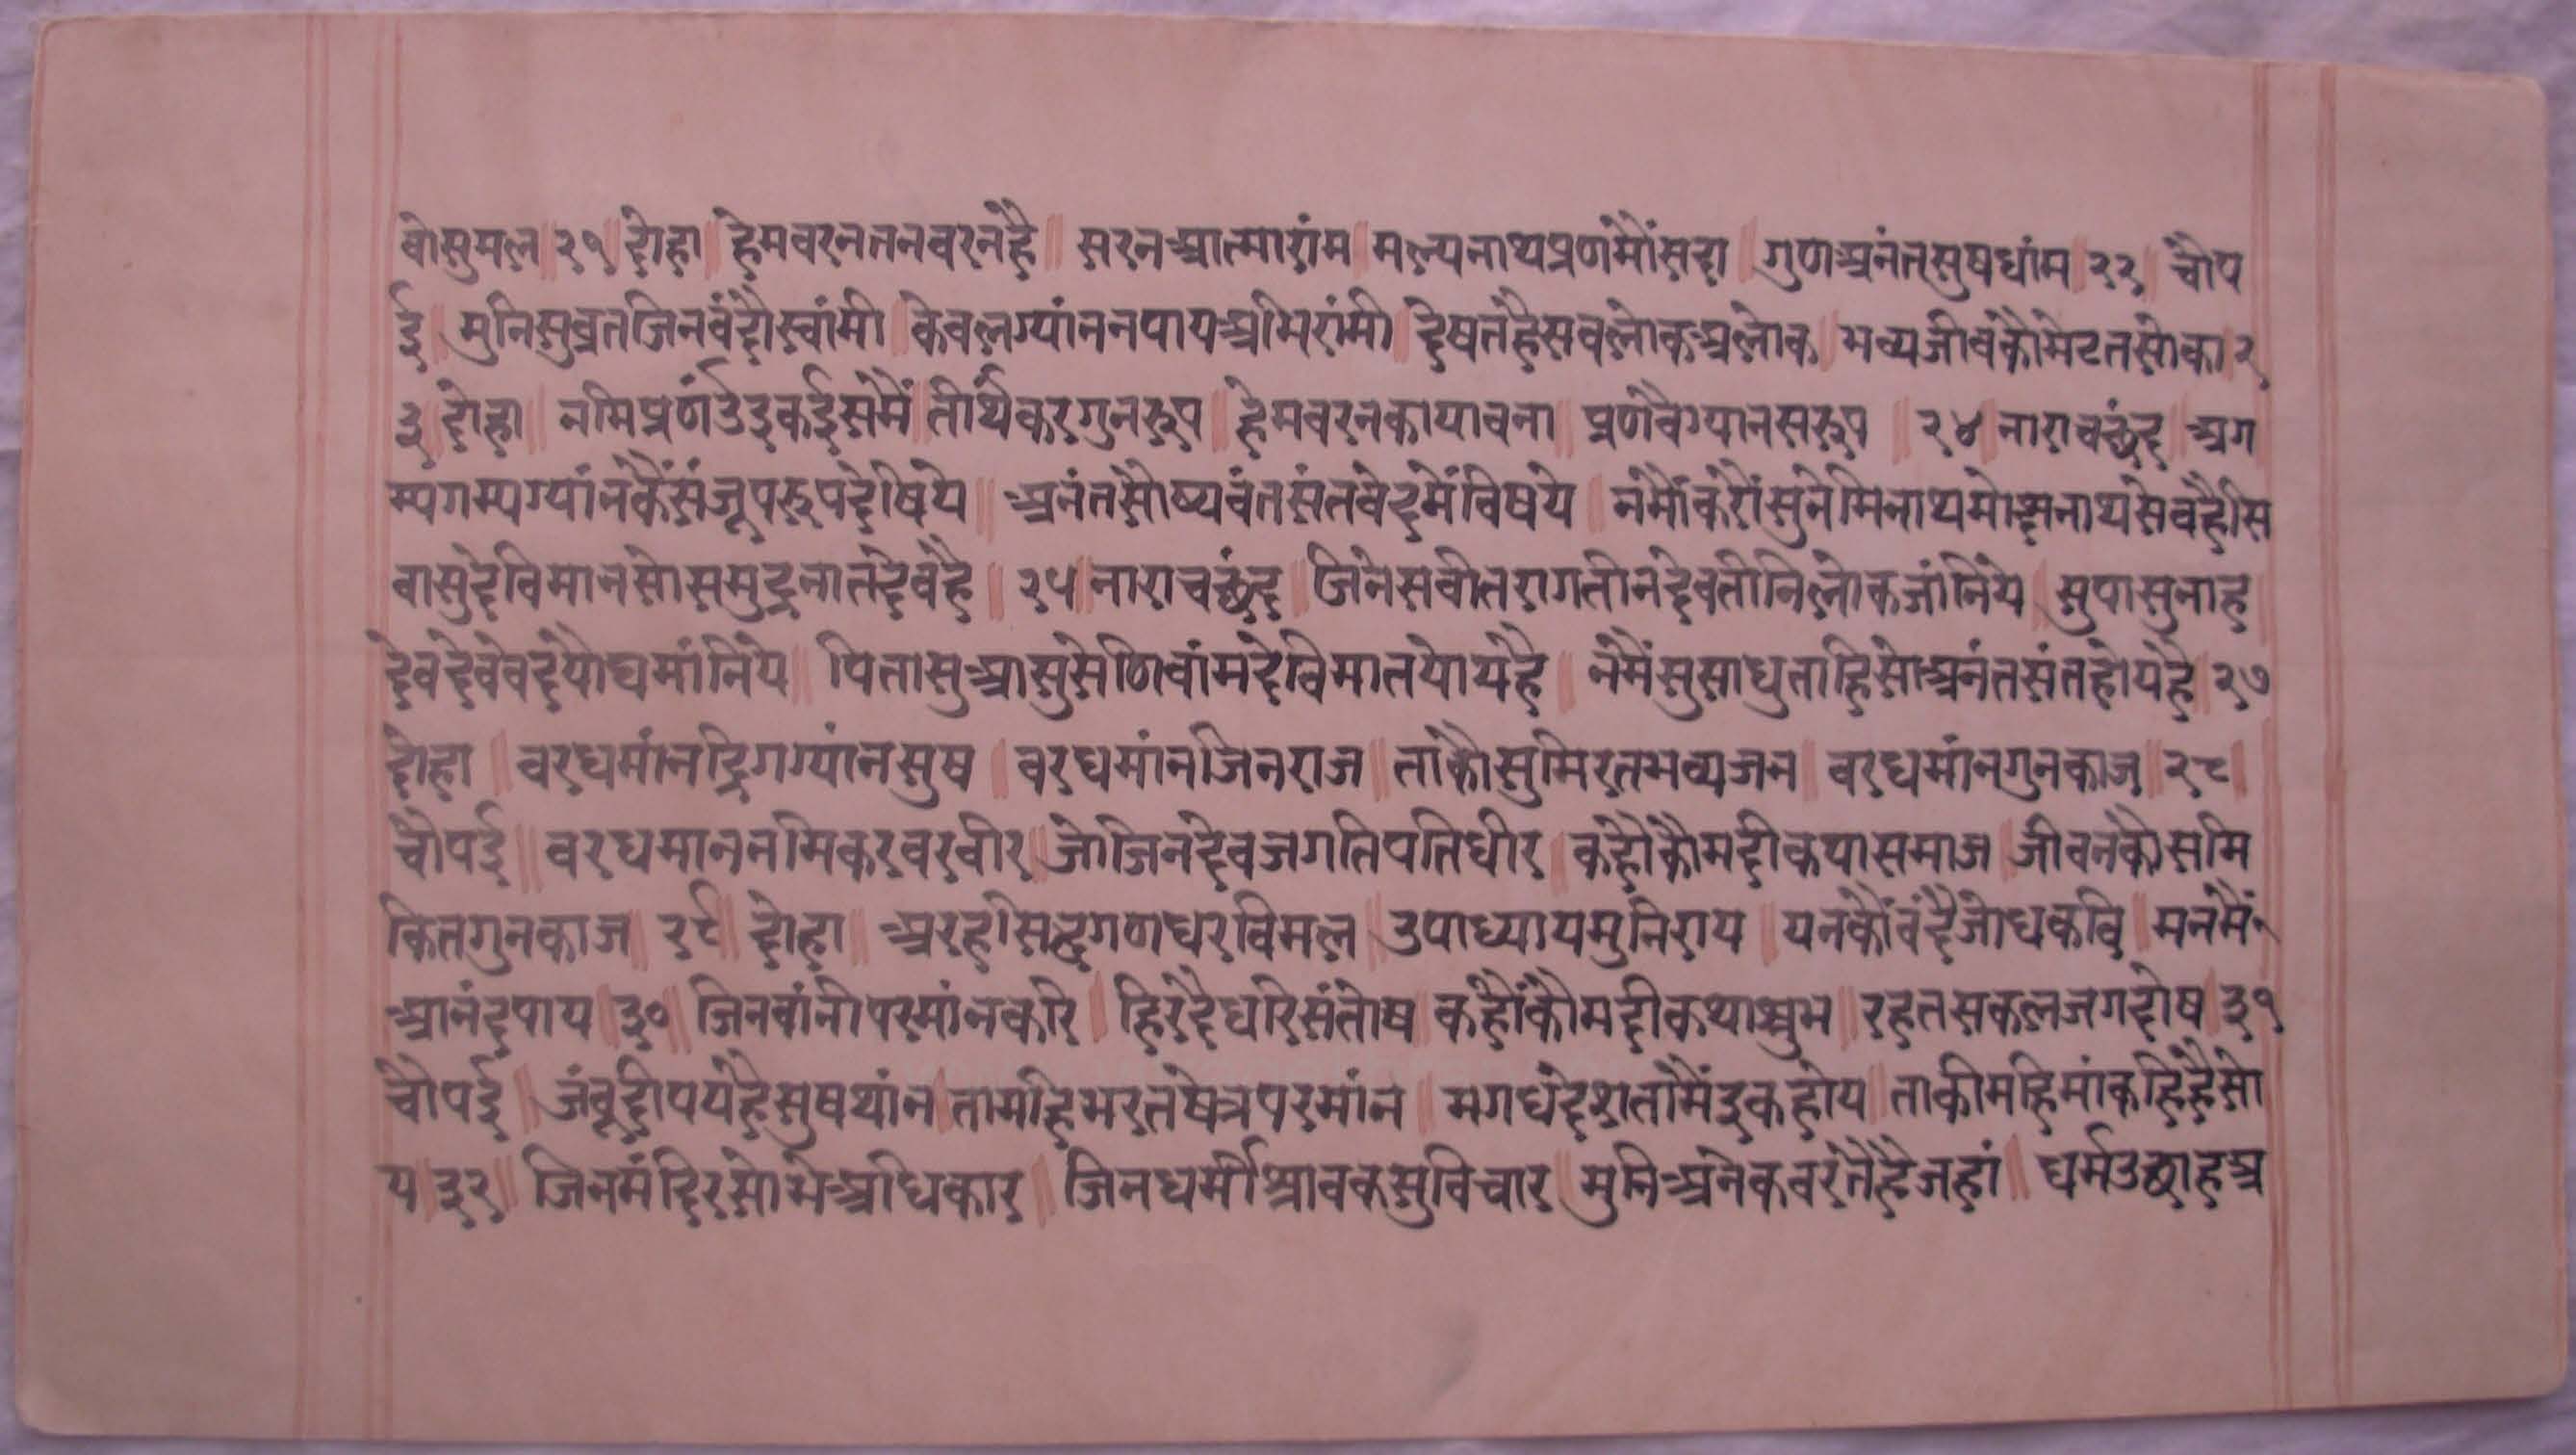 वोसुमल ॥ २१ ॥ दोहा ॥ हेमवरनतनवरनहै ॥ सरनआत्मारांम ॥ मल्यनाथप्रणमौंसदा ॥ गुणअनंतसुषधांम ॥ २२ ॥ चौप
ई ॥ मुनिसुव्रतजिनवंदौस्वांमी ॥ केवलग्यांननपायअभिरांमी ॥ देषतहैसवलोकअलोक ॥ भव्यजीवकौमेटतसोका ॥ २
३ ॥ दोहा ॥ नमिप्रणंउइकईसमैं ॥ तीर्थंकरगुनरूप ॥ हेमवरनकायावना ॥ प्रणवैग्यानसरूप ॥ २४ ॥ नाराचछंद ॥ अग
म्यगम्यग्यांनकैंसंजूपरूपदेषिये ॥ अनंतसौष्यवंतसंतवेदमेंविषये ॥ नमौंकरौंसुनेमिनाथमोक्षनाथसेवहैसि
वासुदेविमानसोसमुद्रनातदेवहै ॥ २५ ॥ नाराचछंद ॥ जिनेसवीतरागतीनदेवतीनिलोकजांनिये ॥ सुपासुनाह
देवदेवेवदेयोघमांनिये ॥ पितासुआसुसेणिवांमदेविमातयोयहै ॥ नमैंसुसाधुताहिसोअनंतसंतहोयहै २७
दोहा ॥ वरधमांनद्रिगग्यांनसुष ॥ वरधमांनजिनराज ॥ ताकौसुमिरतभव्यजन ॥ वरधमांनगुनकाज ॥ २८ ॥
चौपई ॥ वरधमाननमिकरवरवीर ॥ जोजिनदेवजगतिपतिधीर ॥ कहौकौमदीकपासमाज ॥ जीवनकौसमि
कितगुनकाज ॥ २९ ॥ दोहा ॥ अरहसिद्धगणधरविमल ॥ उपाध्यायमुनिराय ॥ यनकौंवंदैजोधकवि ॥ मनमैं
आनंदपाय ॥ ३० ॥ जिनवांनीपरमांनकरि ॥ हिरदैधरिसंतोष ॥ कहौंकौमदीकथाशुभ ॥ रहतसकलजगदोष ॥ ३१
चौपई ॥ जंवूद्वीपयहैसुषथांन ॥ तामहिभरतषेत्रपरमांन ॥ मगधदेशतामैंइकहोय ॥ ताकीमहिमांकहिहैसो
य ॥ ३२ ॥ जिनमंदिरसोभेअधिकार ॥ जिनधर्मीश्रावकसुविचार ॥ मुनिअनेकवरतैहैजहां ॥ धर्मउछाहअ